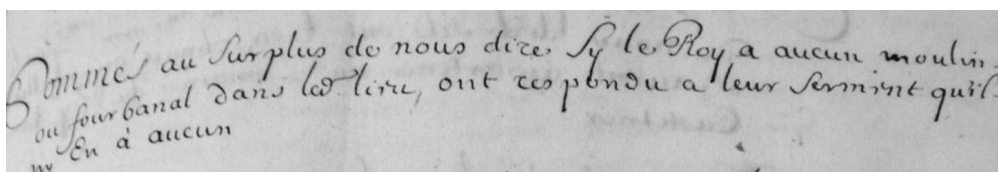 Sommés au surplus de nous dire sy le Roy a aucun moulin
ou four banal dans led. lieu, ont respondu a leur serment qu'il
ny En à aucun